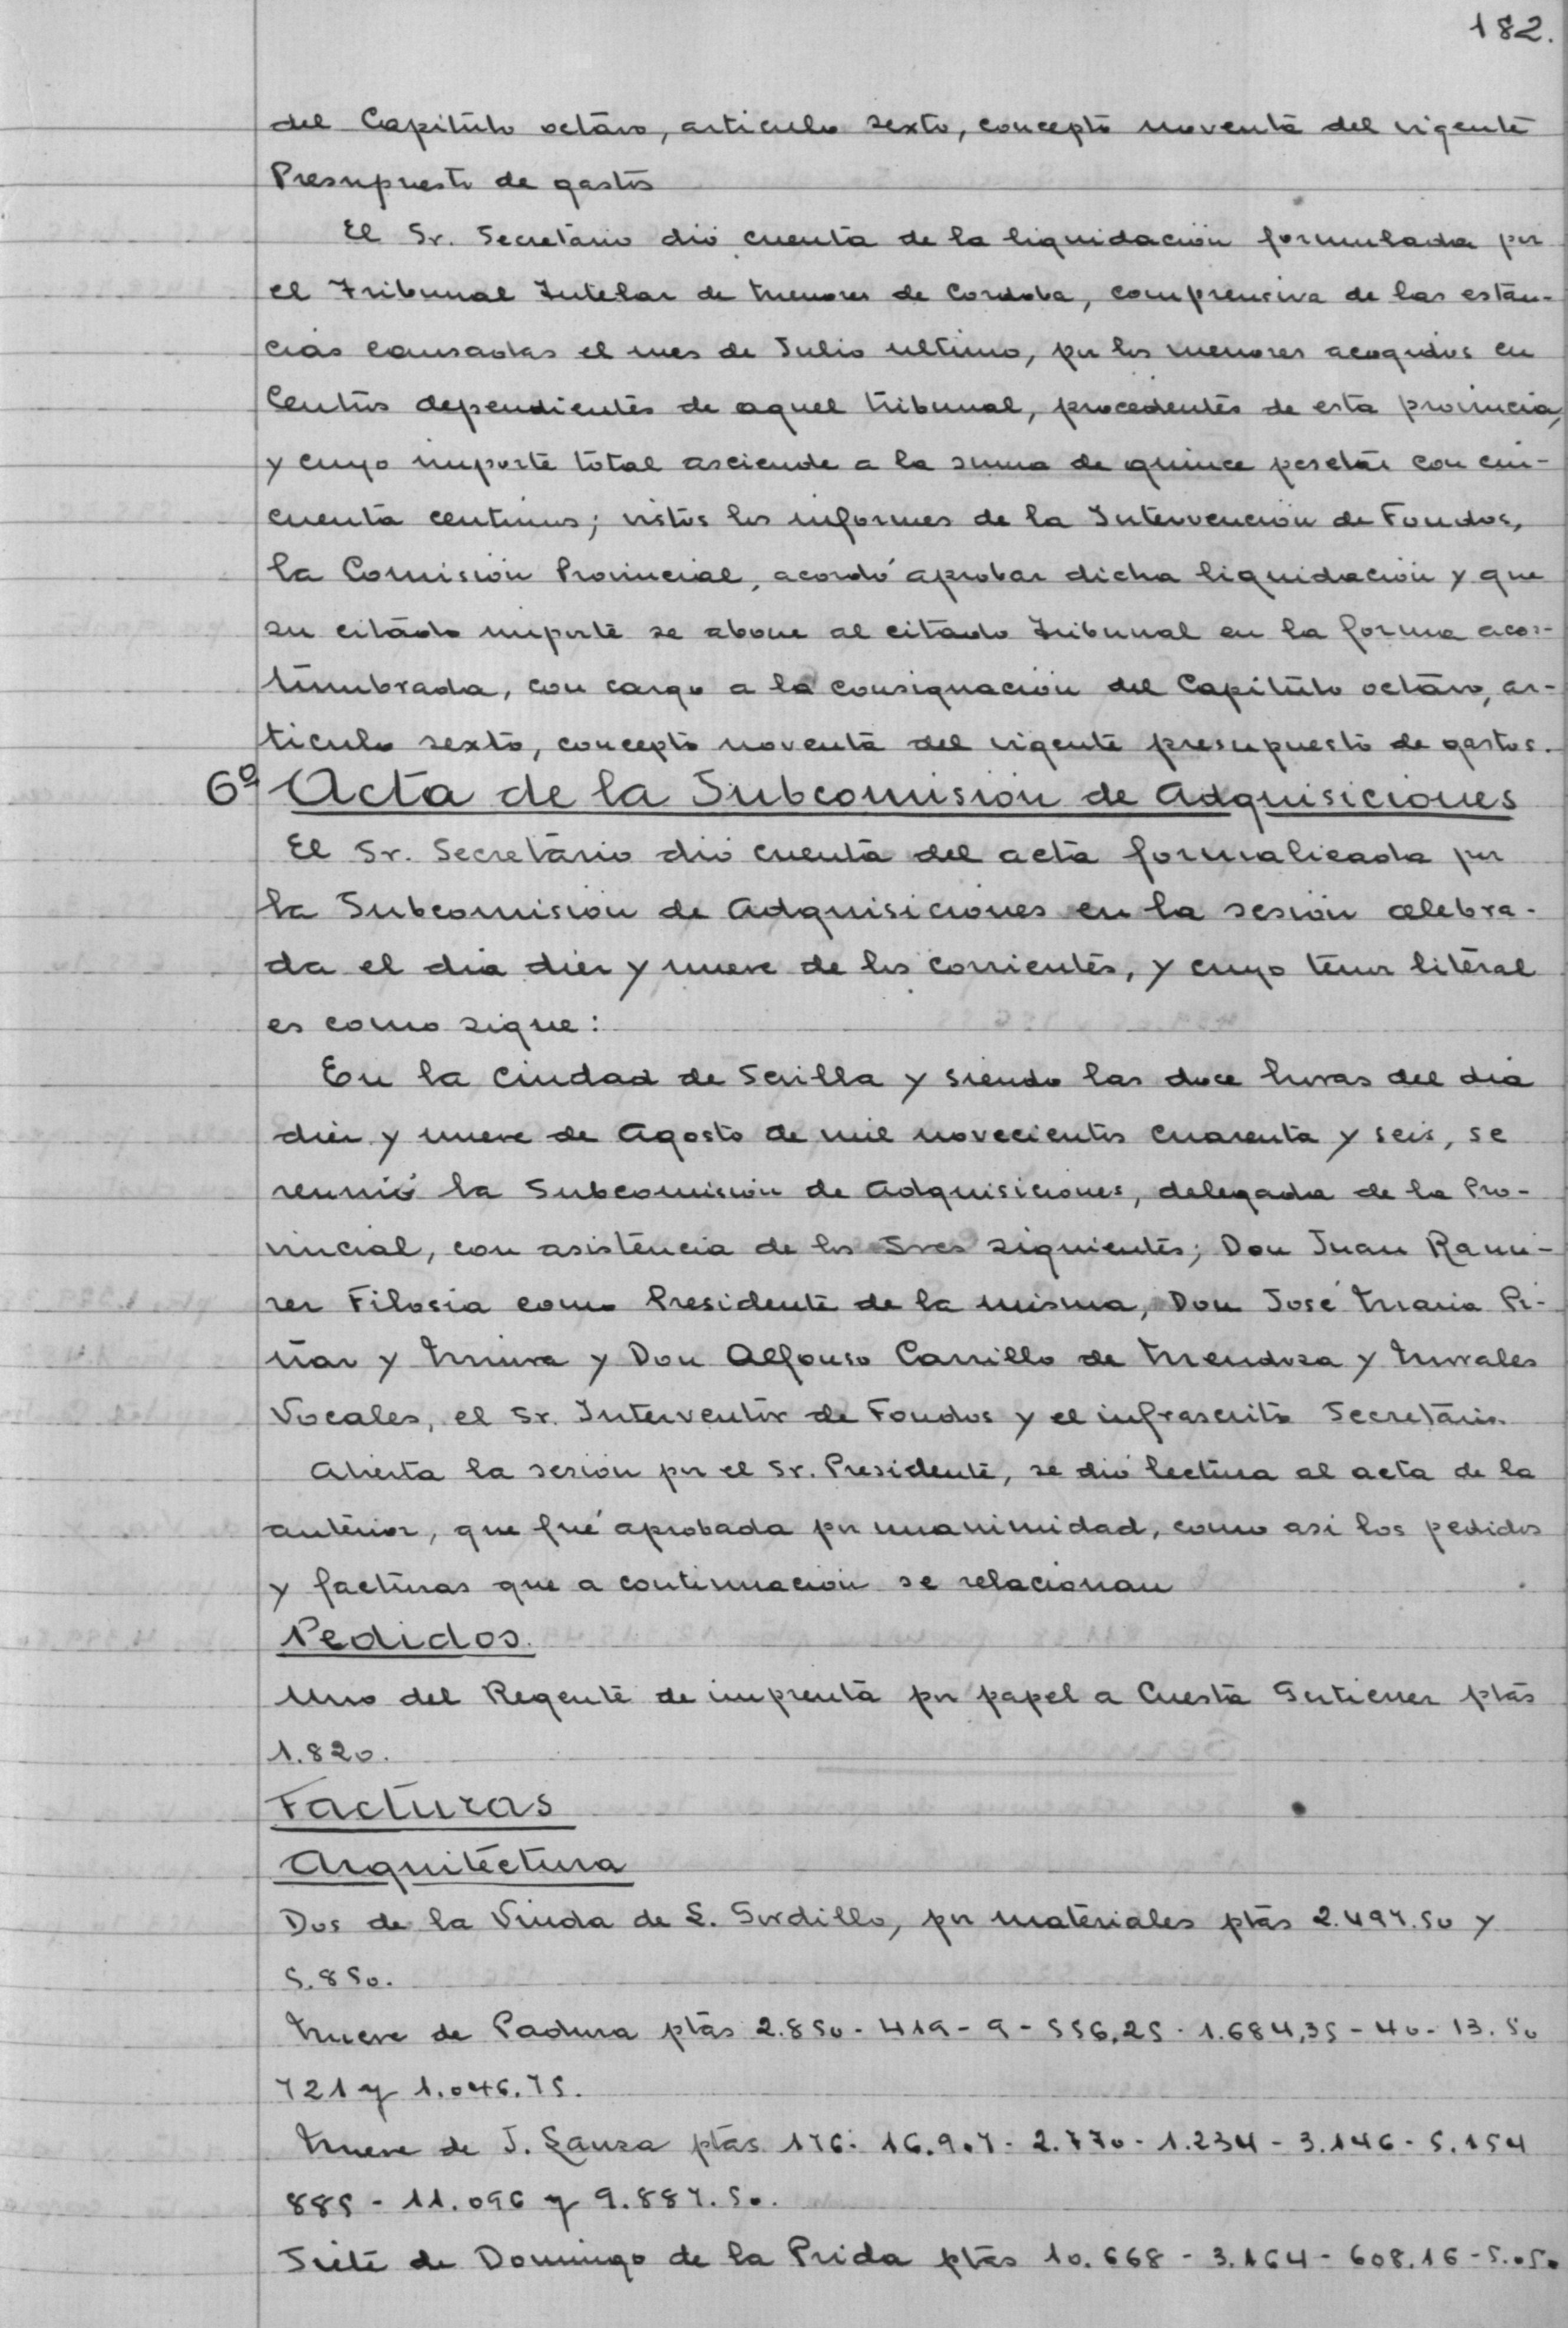 182.
del Capitulo octavo, articulo sexto, concepto noventa del vigente
Presupuesto de gastos
El Sr. Secretario dió cuenta de la liquidación formulada por
el Tribunal Tutelar de Menores de Cordoba, comprensiva de las estan-
cias causadas el mes de Julio ultimo, por los menores acogidos en
Centros dependientes de aquel tribunal, procedentes de esta provincia,
y cuyo importe total asciende a la suma de quince pesetas con cin-
cuenta centimos; vistos los informes de la Intervención de Fondos,
la Comisión Provincial, acordó aprobar dicha liquidación y que
su citado importe se abone al citado Tribunal en la forma acos-
tumbrada, con cargo a la consignación del Capitulo octavo, ar-
ticulo sexto, concepto noventa del vigente presupuesto de gastos.
6º Acta de la Subcomisión de Adquisiciones
El Sr. Secretario dió cuenta del acta formalicada por
la Subcomisión de Adquisiciones en la sesión celebra-
da el dia diez y nueve de los corrientes, y cuyo tenor literal
es como sigue:
En la ciudad de Sevilla y siendo las doce horas del dia
diez y nueve de Agosto de mil novecientos cuarenta y seis, se
reunió la Subcomisión de Adquisiciones, delegada de la Pro-
vincial, con asistencia de los Sres siguientes; Don Juan Rami-
rez Filosia como Presidente de la misma, Don José Maria Pi-
ñar y Miura y Don Alfonso Carrillo de Mendoza y Morales
Vocales, el Sr. Interventor de Fondos y el infrascrito Secretario.
Abierta la sesión por el Sr. Presidente, se dió lectura al acta de la
anterior, que fué aprobada por unanimidad, como asi los pedidos
y facturas que a continuación se relacionan
Pedidos.
Uno del Regente de imprenta por papel a Cuesta Gutierrez ptas
1.820.
Facturas
Arquitectura
Dos de la Viuda de L. Gordillo, por materiales ptas 2.497.50 y
5.850.
Nueve de Padura ptas 2.850 - 419 - 9 - 556,25 - 1.684,35 - 40 - 13.50
721 y 1.046.75.
Nueve de J. Lanza ptas 176 - 16.907 - 2.770 - 1.234 - 3.146 - 5.154
885 - 11.096 y 9.887.50.
Siete de Domingo de la Prida ptas 10.668 - 3.164 - 608.16 - 5.050